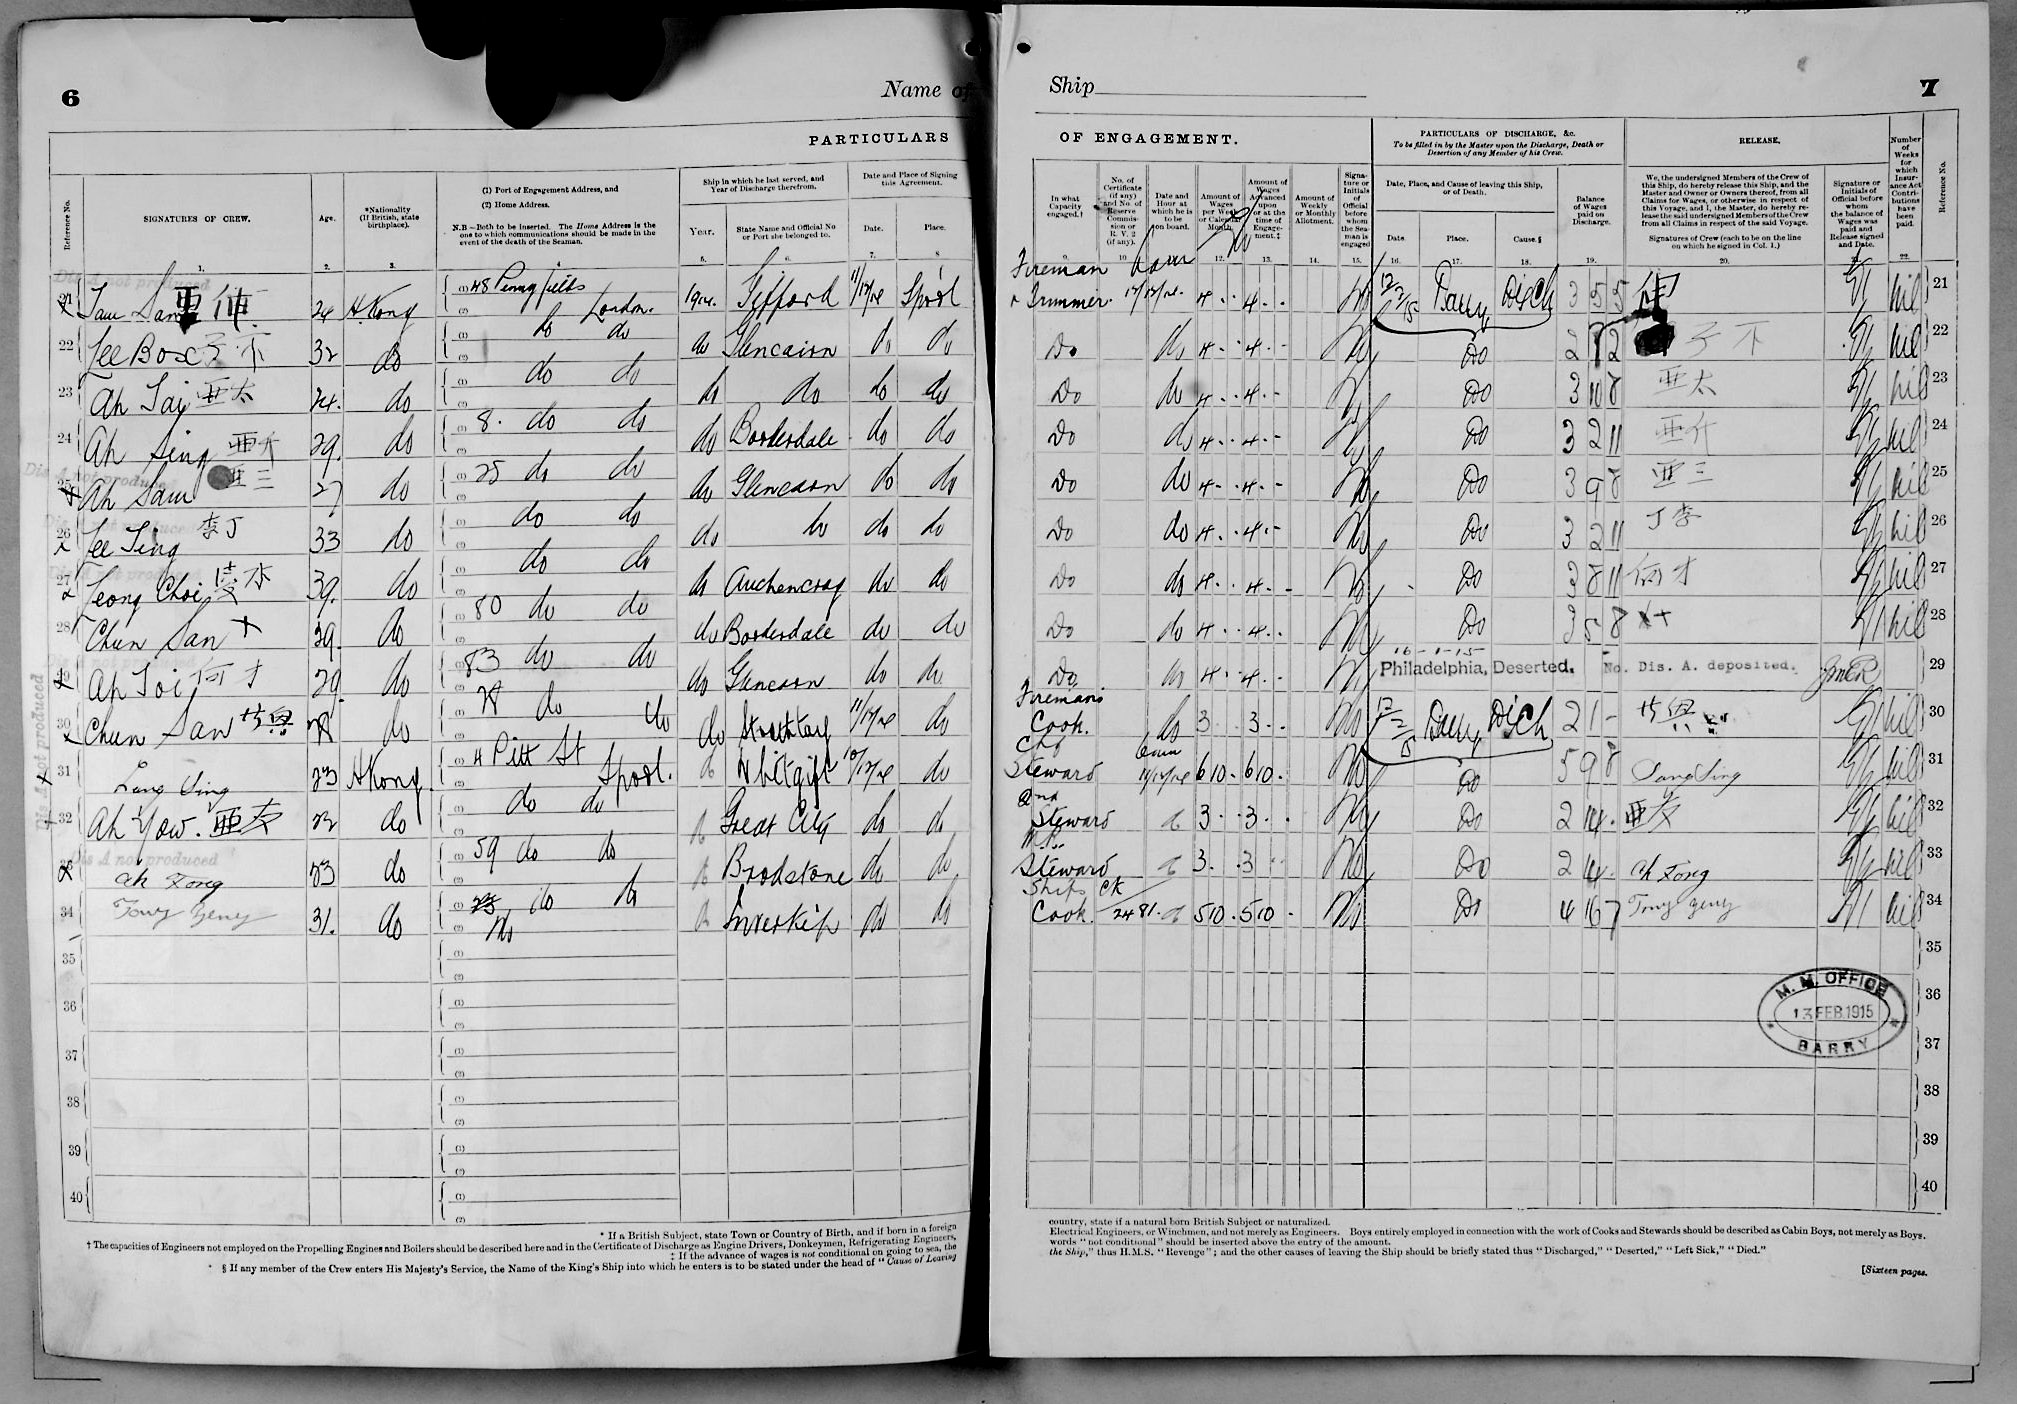 6
Name of
PARTICULARS
Reference No.
SIGNATURES OF CREW.
Age.
*Nationality
(If British, state
birthplace).
(1) Port of Engagement Address, and
(2) Home Address.
N.B.—Both to be inserted. The Home Address is the
one to which communications should be made in the
event of the death of the Seaman.
Ship in which he last served, and
Year of Discharge therefrom.
Year.
State Name and Official No
or Port she belonged to.
Date and Place of Signing
this Agreement.
Date.
Place.
1. 2. 3. 5. 6. 7. 8
Dis A not produced
21 Sam San 24 H. Kong 48 Pennyfields London. 1914. Gifford 11/12/14 Lpool
22 Lee Box 32 do do do do Glencairn do do
23 Ah Tai 亜太 24. do do do do do do do
24 Ah Sing 亜 29. do 8. do do do Borderdale do do
Dis A not produced
25 Ah Sam 亜三 27 do 25 do do do Glencairn do do
26 Lee Ting 李丁 33 do do do do do do do
27 Leong Choi 39. do do do do Auchencrag do do
28 Chun San + 39. do 80 do do do Borderdale do do
29 Ah Toi 何才 29 do 83 do do do Glencairn do do
30 Chun San do do do do 11/12/14 do
31 Lang Sing 23 H Kong 4 Pitt St Lpool. Whitgift 10/12/14 do
32 Ah Yow. 亜友 22 do do do Great City do do
Dis A not produced
33 Ah Fong 23 do 59 do do Brodstone do do
34 31. do do do Inverkip do do
35
36
37
38
39
40
Dis A not produced
* If a British Subject, state Town or Country of Birth, and if born in a foreign
† The capacities of Engineers not employed on the Propelling Engines and Boilers should be described here and in the Certificate of Discharge as Engine Drivers, Donkeymen, Refrigerating Engineers,
‡ If the advance of wages is not conditional on going to sea, the
§ If any member of the Crew enters His Majesty's Service, the Name of the King's Ship into which he enters is to be stated under the head of "Cause of Leaving
Ship
7
OF ENGAGEMENT.
In what
Capacity
engaged.†
No. of
Certificate
(if any)
and No. of
Reserve
Commis
sion or
R. V. 2
(if any).
Date and
Hour at
which he is
to be
on board.
Amount of
Wages
per Week
or Calendar
Month.
Amount of
Wages
Advanced
upon
or at the
time of
Engage-
ment.‡
Amount of
Weekly
or Monthly
Allotment.
Signa-
ture or
Initials
of
Official
before
whom
the Sea-
man is
engaged
PARTICULARS OF DISCHARGE, &c.
To be filled in by the Master upon the Discharge, Death or
Desertion of any Member of his Crew.
Date, Place, and Cause of leaving this Ship,
or of Death.
Date.
Place.
Cause.§
Balance
of Wages
paid on
Discharge.
RELEASE.
We, the undersigned Members of the Crew of
this Ship, do hereby release this Ship, and the
Master and Owner or Owners thereof, from all
Claims for Wages, or otherwise in respect of
this Voyage, and I, the Master, do hereby re-
lease the said undersigned Members of the Crew
from all Claims in respect of the said Voyage.
Signatures of Crew (each to be on the line
on which he signed in Col. 1.)
Signature or
Initials of
Official before
whom
the balance of
Wages was
paid and
Release signed
and Date.
Number
of
Weeks
for
which
Insur-
ance Act
Contri-
butions
have
been
paid.
Reference No.
10 12. 13. 14. 15. 16. 17. 18. 19. 20. 22.
Fireman
& Trimmer. 12/12/14. 4 . . 4 . - 12/2/15 Barry Disch 3 5 5 nil 21
Do do 4 . . 4 . - Do 子不 nil 22
Do do 4 . . 4 . - Do 3 10 8 亜太 nil 23
Do do 4 . . 4 . - Do 3 2 11 亜 nil 24
Do do 4 . . 4 . - Do 3 9 8 亜三 nil 25
Do do 4 . . 4 . - Do 3 2 11 丁李 nil 26
Do do 4 . . 4 . - Do 3 8 11 何才 nil 27
Do do 4 . . 4 . . Do 3 5 8 nil 28
Do do 4 . . 4 . - 16-1-15 Philadelphia, Deserted. No. Dis. A. deposited. 29
Firemans
Cook. do 3 . . 3 . - 12/2/15 Barry Disch 2 1 - nil 30
Chf
Steward 6 10 . 6 10 . Do 5 9 8 Lang Sing nil 31
2nd
Steward 3 . . 3 . . Do 2 14 . 亜友 nil 32
M.R.
Steward 3 . . 3 . . Do 2 14 . Ah Fong nil 33
Ships
Cook. CK 2481. 5 10 . 5 10 - Do 4 16 7 nil 34
35
36
37
38
39
40
M. M. OFFICE
13 FEB. 1915
BARRY
country, state if a natural born British Subject or naturalized.
Electrical Engineers, or Winchmen, and not merely as Engineers. Boys entirely employed in connection with the work of Cooks and Stewards should be described as Cabin Boys, not merely as Boys.
words "not conditional" should be inserted above the entry of the amount.
the Ship," thus H.M.S. "Revenge"; and the other causes of leaving the Ship should be briefly stated thus "Discharged," "Deserted," "Left Sick," "Died."
[Sixteen pages.